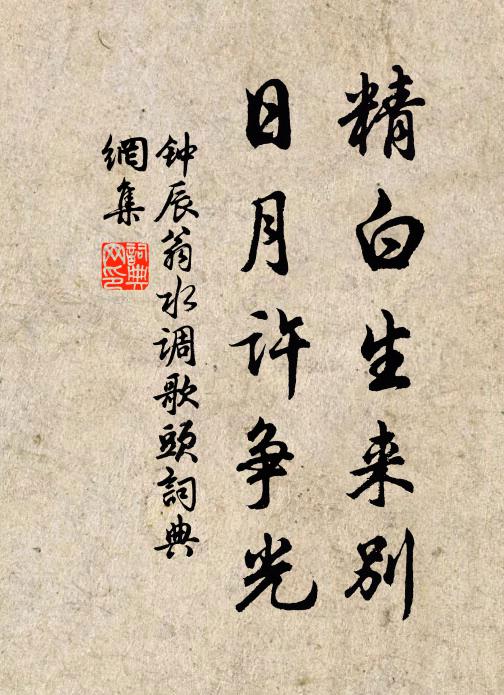 精白生来别
日月许争光
钟辰翁水调歌頭詞典
網集
詞典
网印